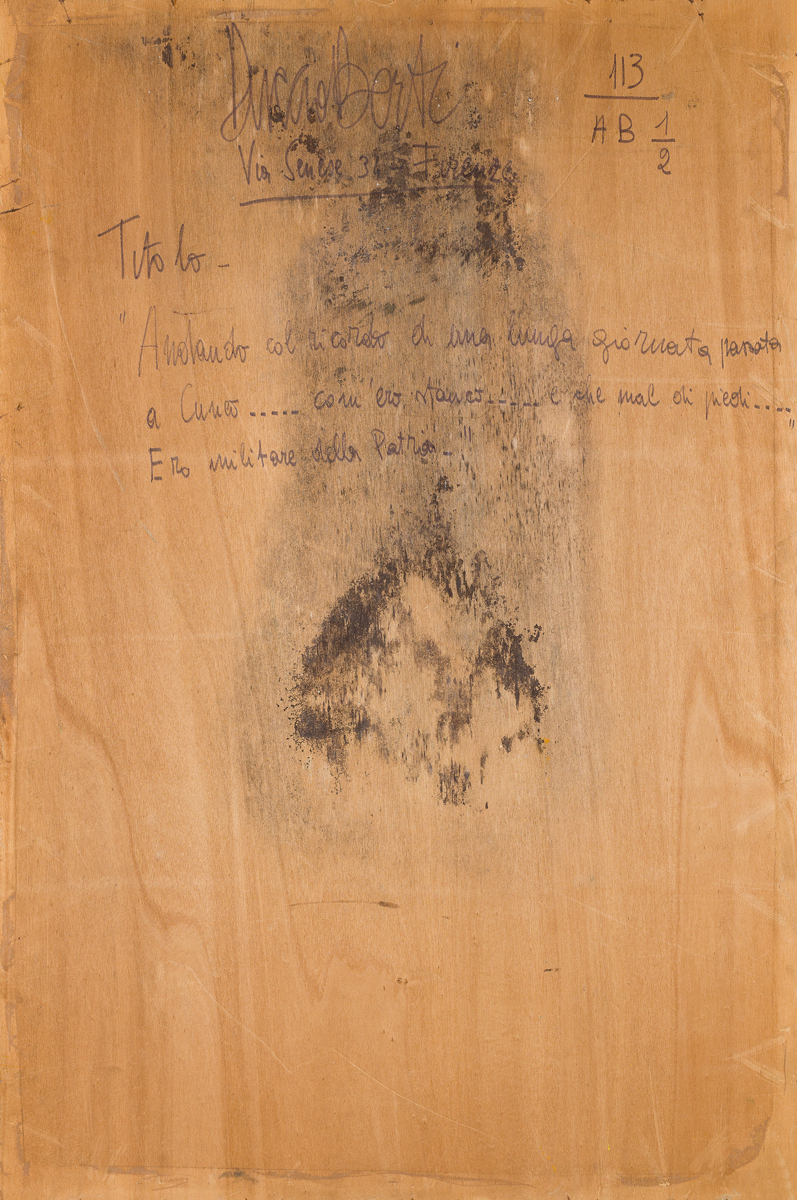 Duccio Berti
Via Senese 31 - Firenze
113
AB 1/2
Titolo -
" Andando col ricordo di una lunga giornata passata
a Cuneo ..... com'ero stanco ..... e che mal di piedi .... "
Ero militare della Patria -